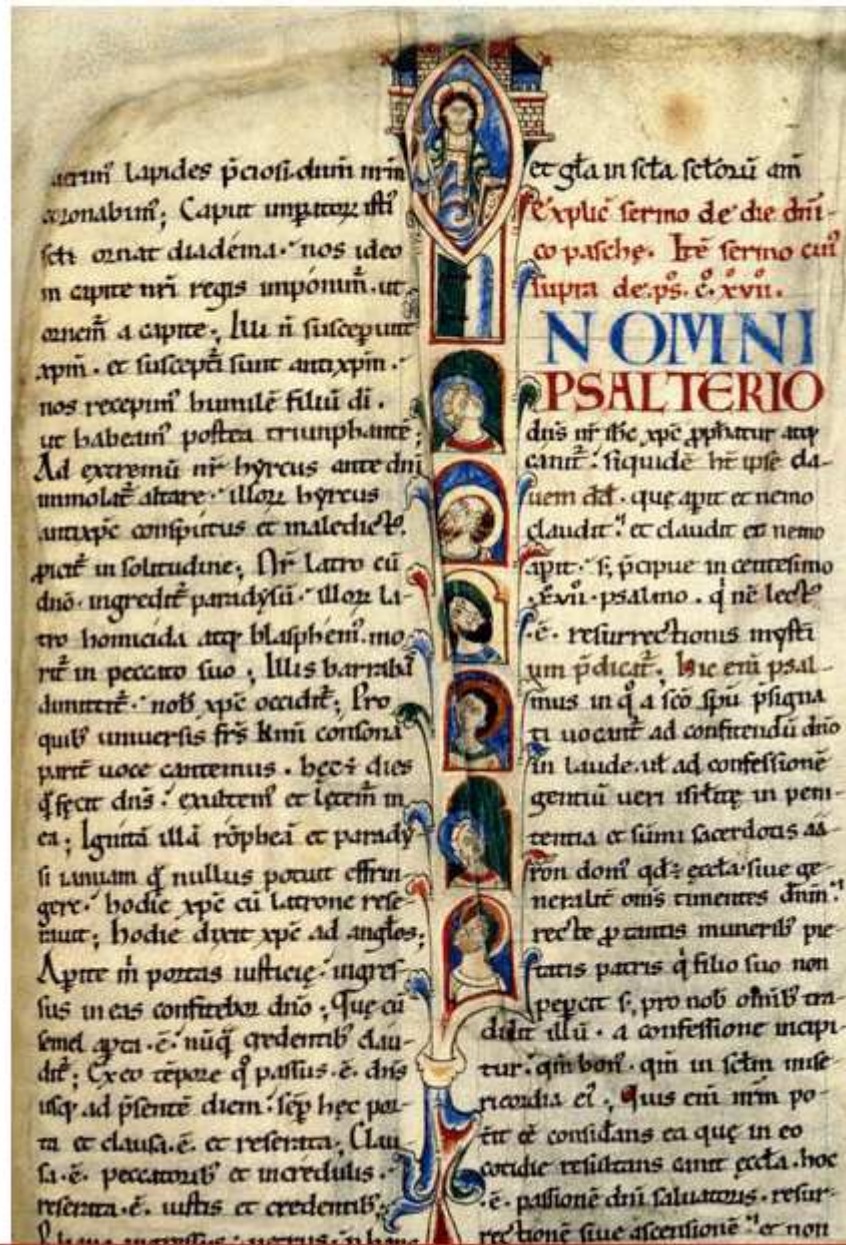 lapides p̄ciosi dum nr̄m
coronabim᷒; Caput imp̄atorꝝ isti
sc̄i ornat diadema · nos ideo
in capite nr̄i regis imponim᷒ · ut
ornem̄ a capite; Illi n̄ susceperunt
xp̄m · et suscepturi sunt antixp̄m ·
nos recepim᷒ humilē filiū di ·
ut habeam᷒ postea triunphantē;
Ad extremū nr̄ hyrcus ante dn̄i
immolat᷒ altare · illorꝝ hyrcus
antixp̄c consputus et maledict᷒
ꝓicit᷒ in solitudine; Nr̄ latro cū
dn̄o · ingredit᷒ paradysū · illorꝝ la-
tro homicida atq; blasphem᷒ · mo
rit᷒ in peccato suo; Illis barrabā
dimittit᷒ · nob᷒ xp̄c occidit᷒; Pro
quib᷒ universis fr̄s k̄mi consona
parit̄ uoce cantemus · hęc ē dies
q̄ fecit dn̄s · exultem᷒ et lętem᷒ in
ea; Ignitā illā rōpheā et parady
si ianuam q̄ nullus potuit effrin-
gere · hodie xp̄c cū latrone rese-
rauit; hodie dixit xp̄c ad anglos;
Apite m̄ portas iusticię · ingres-
sus in eas confitebor dn̄o; Quę cū
semel aꝑta · ē · nūq̄ credentib᷒ clau-
dit᷒; Ex eo tēpore q̄ passus · ē · dn̄s
usq; ad p̄sentē diem · sēp hęc por-
ta et clausa · ē · et reserata; Clau-
sa · ē · peccatorib᷒ et incredulis ·
reserata · ē · iustis et credentib᷒;
et gl̄a in sc̄la sc̄lorū am̄
Explic̄ sermo de die dn̄i-
co paschę · Itē sermo cui᷒
supra de · ps · c̊ · xvii̊ ·
N OMNI
PSALTERIO
dn̄s nr̄ ihc xp̄c ꝓphatur atq;
canit᷒ · siquidē hr̄ ipse da-
uem dd̄ · quę apit et nemo
claudit · et claudit et nemo
apit · s; p̄cipue in centesimo
xvii · psalmo · q̄ nē lect᷒
· ē · resurrectionis mysti
um p̄dicat᷒ · hic eni psal-
mus in q̊ a sc̄o sp̄u p̄signa
ti uocant᷒ ad confitendū dn̄o
in laude · ut̄ ad confessionē
gentiū ueri isrl̄itę in peni-
tentia et sūmi sacerdotis aa-
ron dom᷒ qd̄ ē ęccl̄a · siue ge-
neralit̄ om̄s timentes dn̄m ·
recte ꝓ tantis munerib᷒ pie-
tatis patris q̄ filio suo non
peꝑcit s; pro nob᷒ om̄ib᷒ tra-
didit illū · a confessione incipi-
tur · qm̄ bon᷒ · qm̄ in sc̄lm mise-
ricordia ei᷒; Quis eni nr̄m po-
tit eē consid̄ans ea quę in eo
cotidie resultans canit ęccl̄a · hoc
· ē · passionē dn̄i saluatoris · resur-
rectionē siue ascensionē · et non